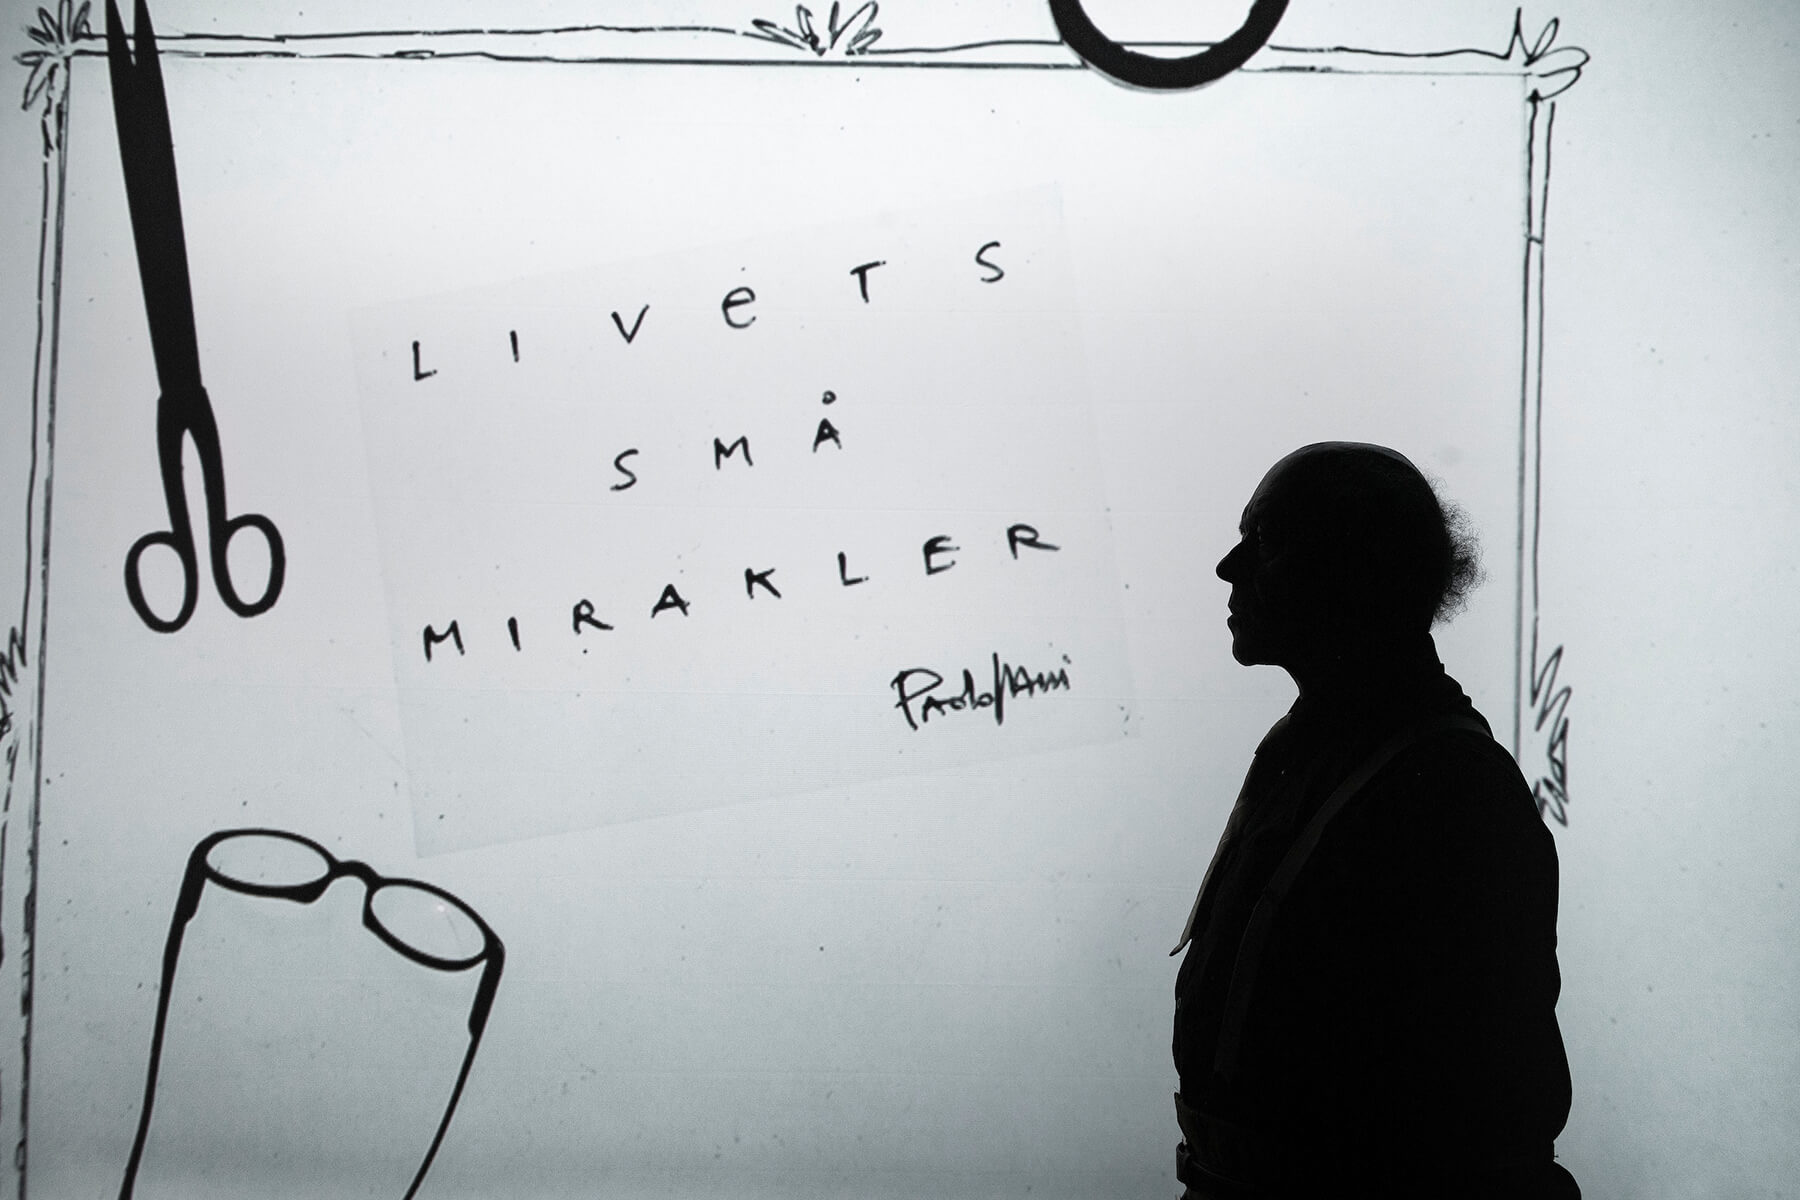 LIVeTS
SMÅ
MIRAKLER
Paolo Nani